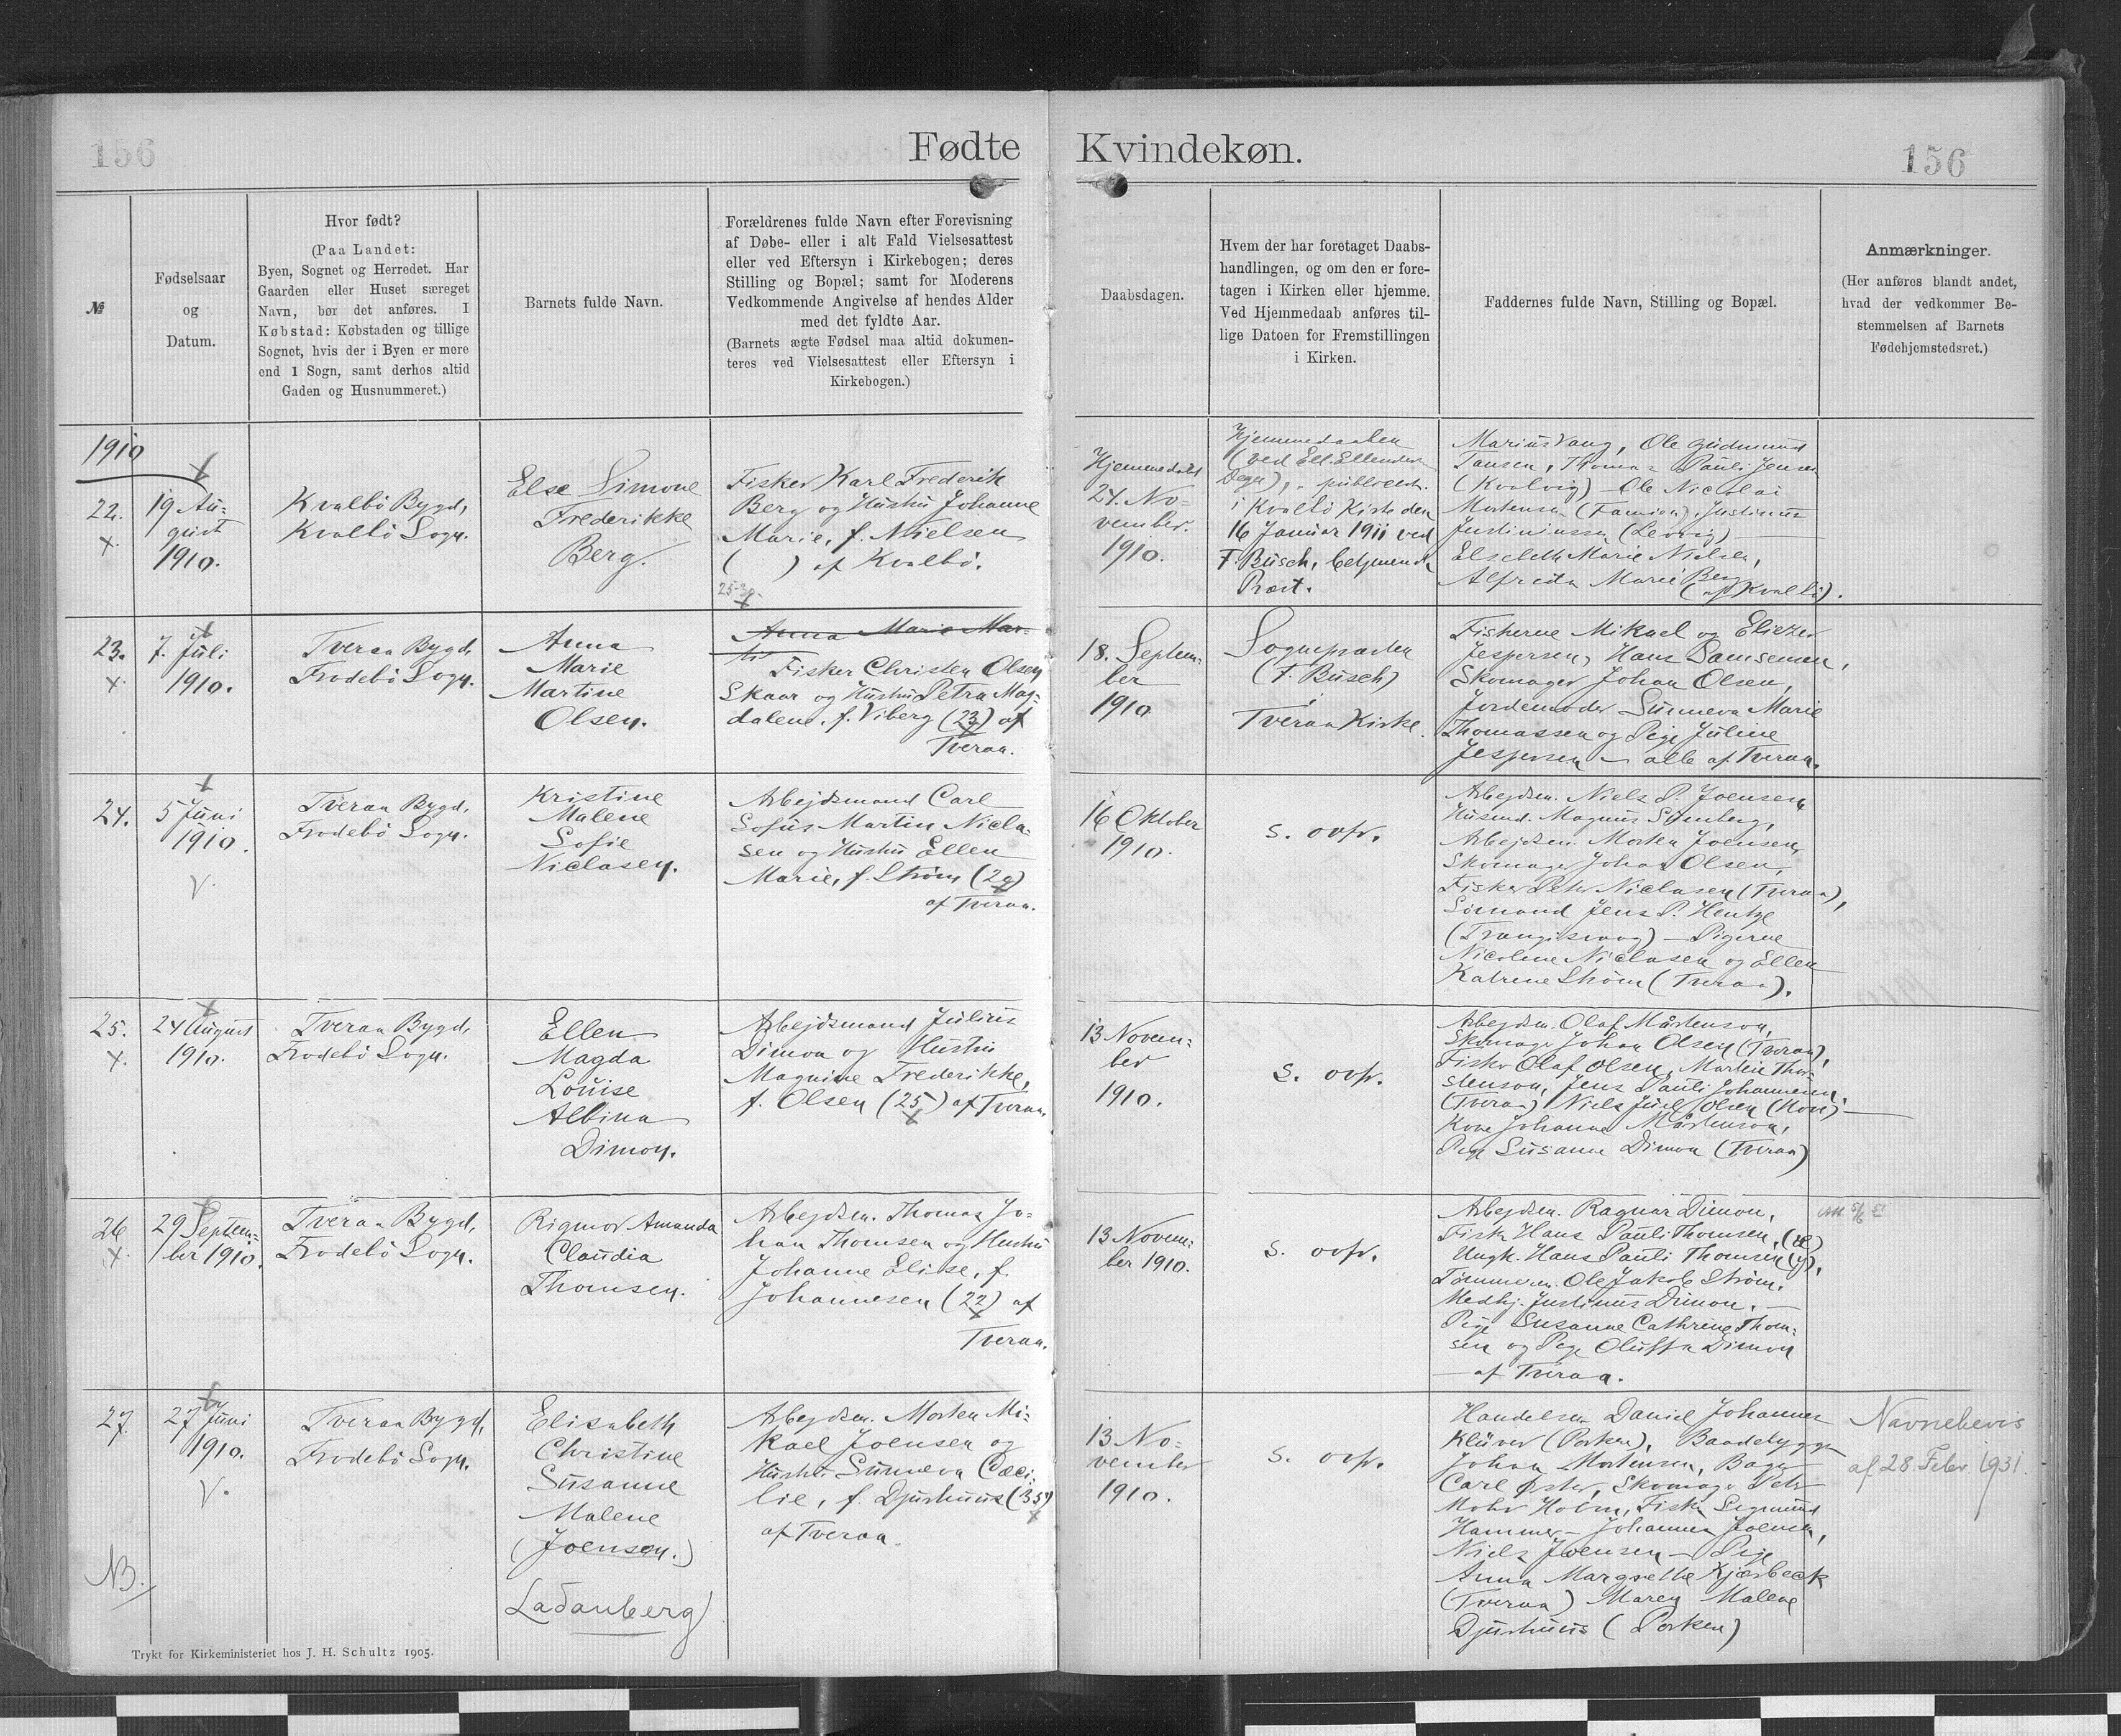 156
Fødte
Kvindekøn.
156
№
Fødselsaar
og
Datum.
Hvor født?
(Paa Landet:
Byen, Sognet og Herredet. Har
Gaarden eller Huset særeget
Navn, bør det anføres. I
Købstad: Købstaden og tillige
Sognet, hvis der i Byen er mere
end 1 Sogn, samt derhos altid
Gaden og Husnummeret.)
Barnets fulde Navn.
Forældrenes fulde Navn efter Forevisning
af Døbe- eller i alt Fald Vielsesattest
eller ved Eftersyn i Kirkebogen; deres
Stilling og Bopæl; samt for Moderens
Vedkommende Angivelse af hendes Alder
med det fyldte Aar.
(Barnets ægte Fødsel maa altid dokumen-
teres ved Vielsesattest eller Eftersyn i
Kirkebogen.)
Daabsdagen.
Hvem der har foretaget Daabs-
handlingen, og om den er fore-
tagen i Kirken eller hjemme.
Ved Hjemmedaab anføres til-
lige Datoen for Fremstillingen
i Kirken.
Faddernes fulde Navn, Stilling og Bopæl.
Anmærkninger.
(Her anføres blandt andet,
hvad der vedkommer Be-
stemmelsen af Barnets
Fødehjemstedsret.)
1910
22.
19 Au-
gust
1910.
Kvalbö Bygd,
Kvalbö Sogn.
Else Simone
Frederikke
Berg.
Fisker Karl Frederik
Berg og Hustru Johanne
Marie, f. Nielsen
( ) af Kvalbö.
Hjemmedøbt
24. No-
vember.
1910.
Hjemmedaaben
(ved Ell. Ellendersen
Degn), publicert.
i Kvalbö Kirke den
16 Januar 1911 ved
F. Busch, betjenende
Præst.
Marius Vang, Ole Gudmund
Jansen, Thomas Pauli Jensen
(Kvalvig) - Ole Nicolai
Mortensen (Famien), Justinus
Justinussen (Lervig) -
Elsebeth Marie Nielsen,
Alfreda Marie Berg
(af Kvalbö).
23.
7. Juli
1910.
Tveraa Bygd,
Frodebö Sogn.
Anna
Marie
Martine
Olsen.
Anna Marie Mar-
Fisker Christen Olsen
Skaar og Hustru Petra Mag-
dalene, f. Viberg (23) af
Tveraa.
18. Septem-
ber
1910
Sognepræsten
(F. Busch)
i
Tveraa Kirke.
Fiskerne Mikael og Eliezer
Jespersen, Hans Samsensen,
Skomager Johan Olsen,
Jordemoder Sunneva Marie
Thomassen og Pige Juline
Jespersen - alle af Tveraa.
24.
5 Juni
1910.
Tveraa Bygd,
Frodebö Sogn.
Kristine
Malene
Sofie
Niclasen.
Arbejdsmand Carl
Sofus Martin Nicla-
sen og Hustru Ellen
Marie, f. Strøm (29)
af Tveraa.
16 Oktober
1910.
s. ovfr.
Arbejdsm. Niels P. Joensen
Husmd. Magnus Stenberg,
Arbejdsm. Morten Joensen,
Skomager Johan Olsen,
Fisker Peter Niclasen (Tveraa),
Sömand Jens P. Hentze
(Trangisvaag) - Pigerne
Nicoline Niclasen og Ellen
Katrine Strøm (Tveraa).
25.
24 August
1910.
Tveraa Bygd,
Frodebö Sogn.
Ellen
Magda
Louise
Albina
Dimon.
Arbejdsmand Julius
Dimon og Hustru
Magnine Frederikke,
f. Olsen (25) af Tveraa.
13 Novem-
ber
1910.
s. ovfr.
Arbejdsm. Olaf Mårtenson,
Skomager Johan Olsen (Tveraa),
Fisker Olaf Olsen, Martin Thor-
stenson, Jens Pauli Johannesen
(Tveraa) Niels Juel Olsen (Hove) -
Kone Johanne Mårtenson,
Pige Susanne Dimon (Tveraa)
26
29 Septem-
ber 1910.
Tveraa Bygd,
Frodebö Sogn.
Rigmor Amanda
Claudia
Thomsen.
Arbejdsm. Thomas Jo-
han Thomsen og Hustru
Johanne Elise, f.
Johannesen (22) af
Tveraa.
13 Novem-
ber 1910.
s. ovfr.
Arbejdsm. Ragnar Dimon,
Fisk. Hans Pauli Thomsen, (æ)
Ungk. Hans Pauli Thomsen (y),
Tømmerm. Ole Jakob Strøm,
Medhj. Justinus Dimon, -
Pige Susanne Cathrine Thom-
sen og Pige Oluffa Dimon
af Tveraa.
27.
27 Juni
1910.
NB.
Tveraa Bygd,
Frodebö Sogn.
Elisabeth
Christine
Susanne
Malene
(Joensen.)
Ladanberg
Arbejdsm. Morten Mi-
kael Joensen og
Hustru Sunneva Cæci-
lie, f. Djurhuus (35)
af Tveraa.
13 No-
vember
1910.
s. ovfr.
Handelsm. Daniel Johannes
Klüver (Porken), Baadebygger
Johan Mortensen, Bager
Carl Øster, Skomager Peter
Mohr Holm, Fisker Sigmund
Hammer - Johannes Joensen,
Niels Joensen - Pige
Anna Margrethe Kjærbeck
(Tveraa) Maren Malene
Djurhuus (Porken)
Navnebevis
af 28. Febr. 1931.
Trykt for Kirkeministeriet hos J. H. Schultz 1905.